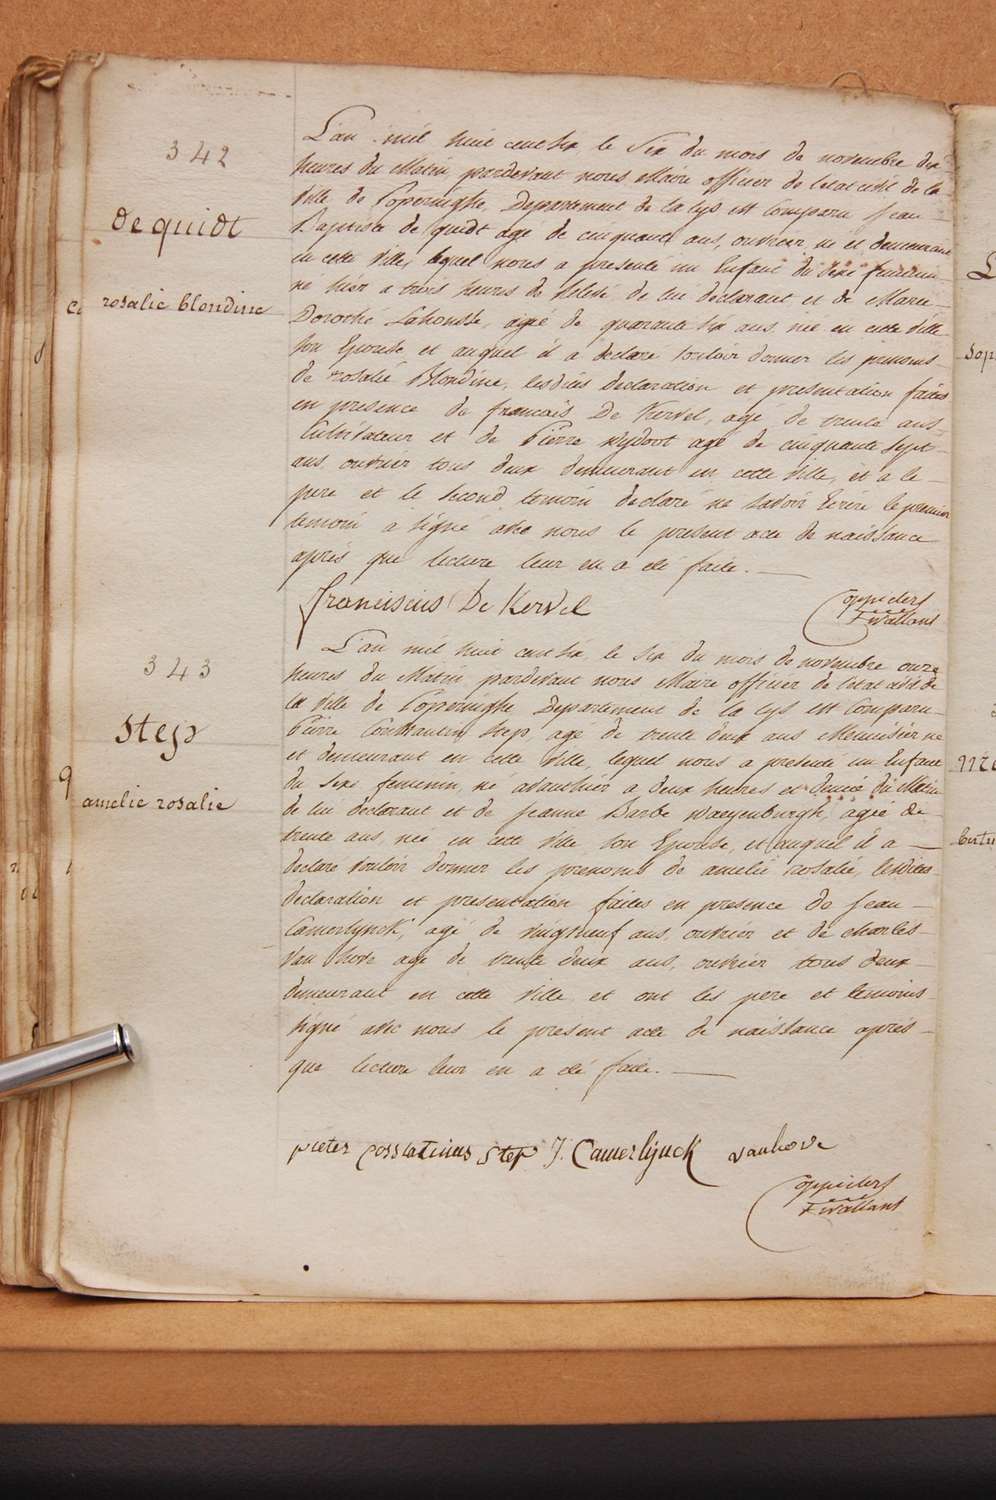 342
de quidt
rosalie blondine
L'an mil huit cent six le Six du mois de novembre dix
heures du Matin pardevant nous Maire officier de l'etat civil de la
Ville de Poperinghe, Departement de la Lys est Comparu Jean
Baptiste de quidt agé de cinquante ans, ouvrier né et demeurant
en cette Ville, lequel nous a presenté un Enfant du Sexe feminin
né hier a trois heures de relevé, de lui declarant et de Marie
Dorothé Lahousse, agée de quarante six ans, née en cette Ville
son Epouse, et auquel il a declare vouloir donner les prenoms
de rosalie Blondine, lesdites declaration et presentation faites
en presence de francois De Kervel, agé de trente ans
Cultivateur et de Pierre wydoot agé de cinquante sept
ans ouvrier tous deux demeurant en cette Ville, et a le
pere et le second temoin declaré ne savoir Ecrire le premier
temoin a signé avec nous le present acte de naissance
aprés que lecture leur en a eté faite.
franciscus De Kervel
343
Step
amelie rosalie
L'an mil huit cent six le six du mois de novembre onze
heures du Matin pardevant nous Maire officier de l'etat civil de
la Ville de Poperinghe Departement de la Lys est Comparu
Pierre Constantin Step, agé de trente deux ans Menuisier né
et demeurant en cette Ville, lequel nous a presenté un Enfant
du Sexe feminin, né avanthier a deux heures et demie du Matin
de lui declarant et de Jeanne Barbe waeyenburgh, agée de
trente ans, née en cette Ville son Epouse, et auquel il a
declare vouloir donner les prenoms de amelie rosalie, lesdites
declaration et presentation faites en presence de Jean
Camerlynck, agé de vingtneuf ans, ouvrier et de charles
Van hove agé de trente deux ans, ouvrier tous deux
demeurant en cette Ville, et ont les pere et temoins
signé avec nous le present acte de naissance aprés
que lecture leur en a eté faite.
pieter Step J. Camerlijnck vanhove